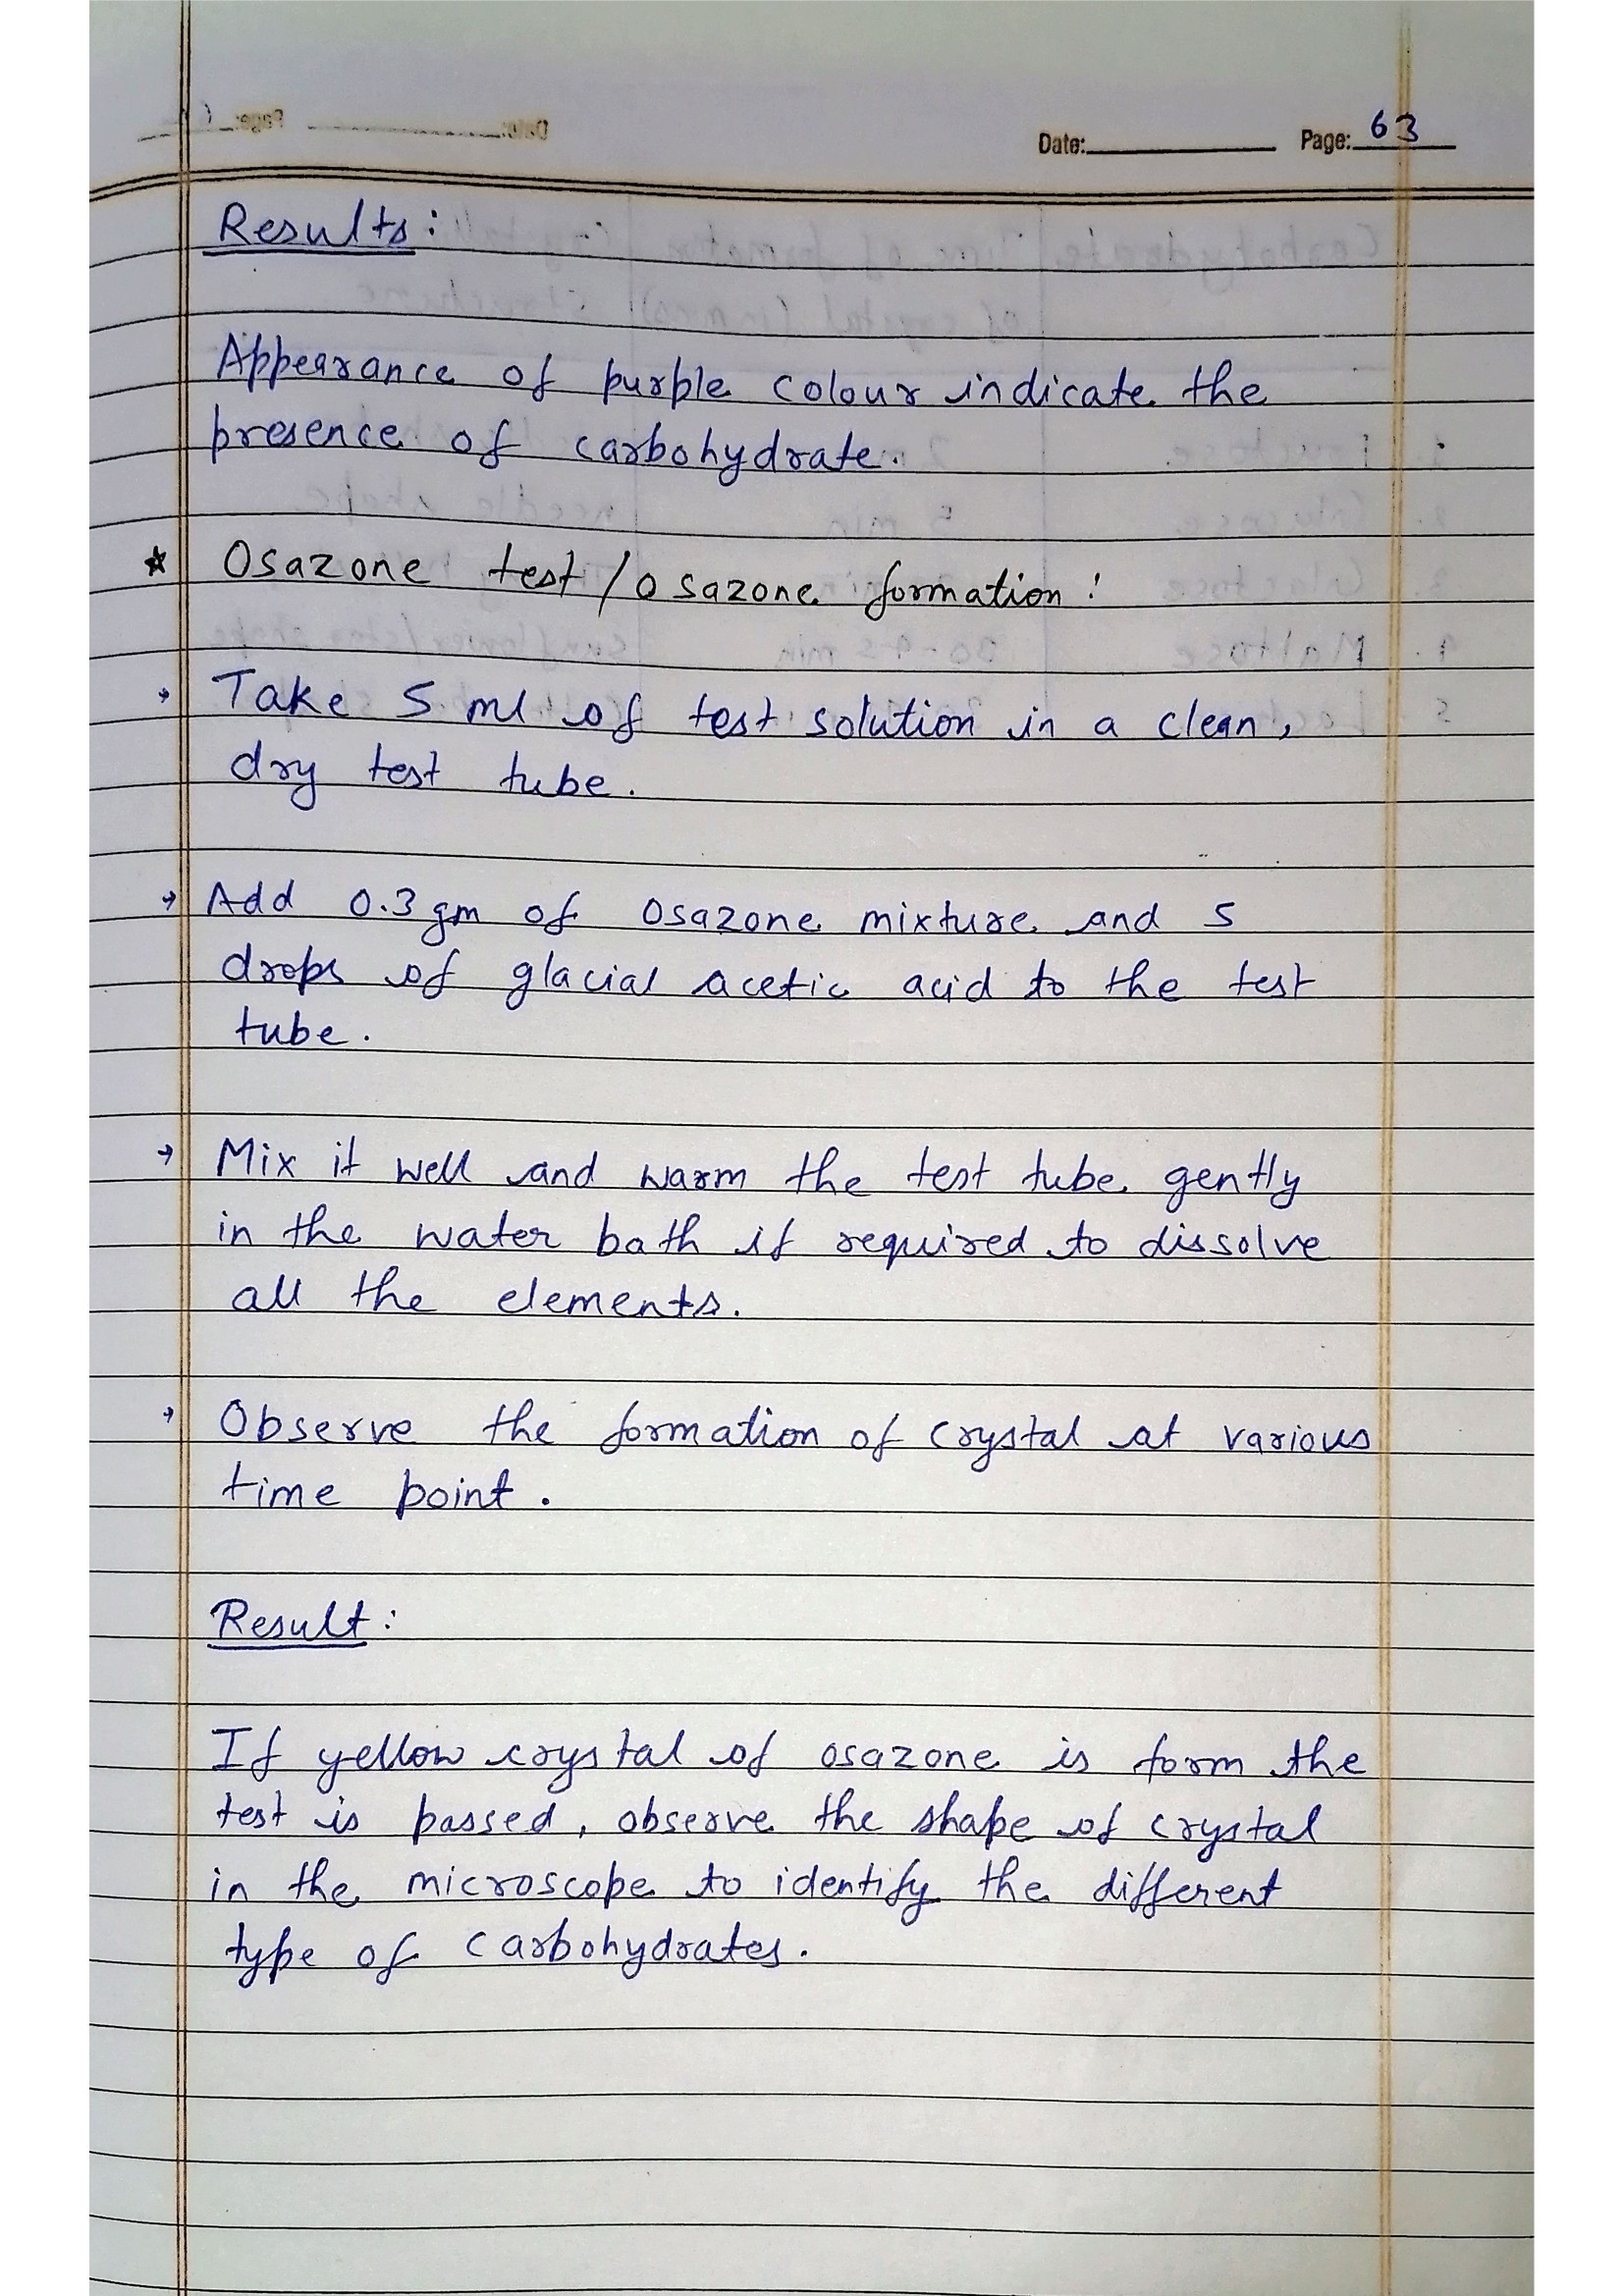 Date: Page: 63
Results:
Appearance of purple colour indicate the
presence of carbohydrate.
* Osazone test/Osazone formation:
→ Take 5 ml of test solution in a clean,
dry test tube.
→ Add 0.3 gm of Osazone mixture and 5
drops of glacial acetic acid to the test
tube.
→ Mix it well and warm the test tube gently
in the water bath if required to dissolve
all the elements.
→ Observe the formation of crystal at various
time point.
Result:
If yellow crystal of osazone is form the
test is passed, observe the shape of crystal
in the microscope to identify the different
type of carbohydrates.